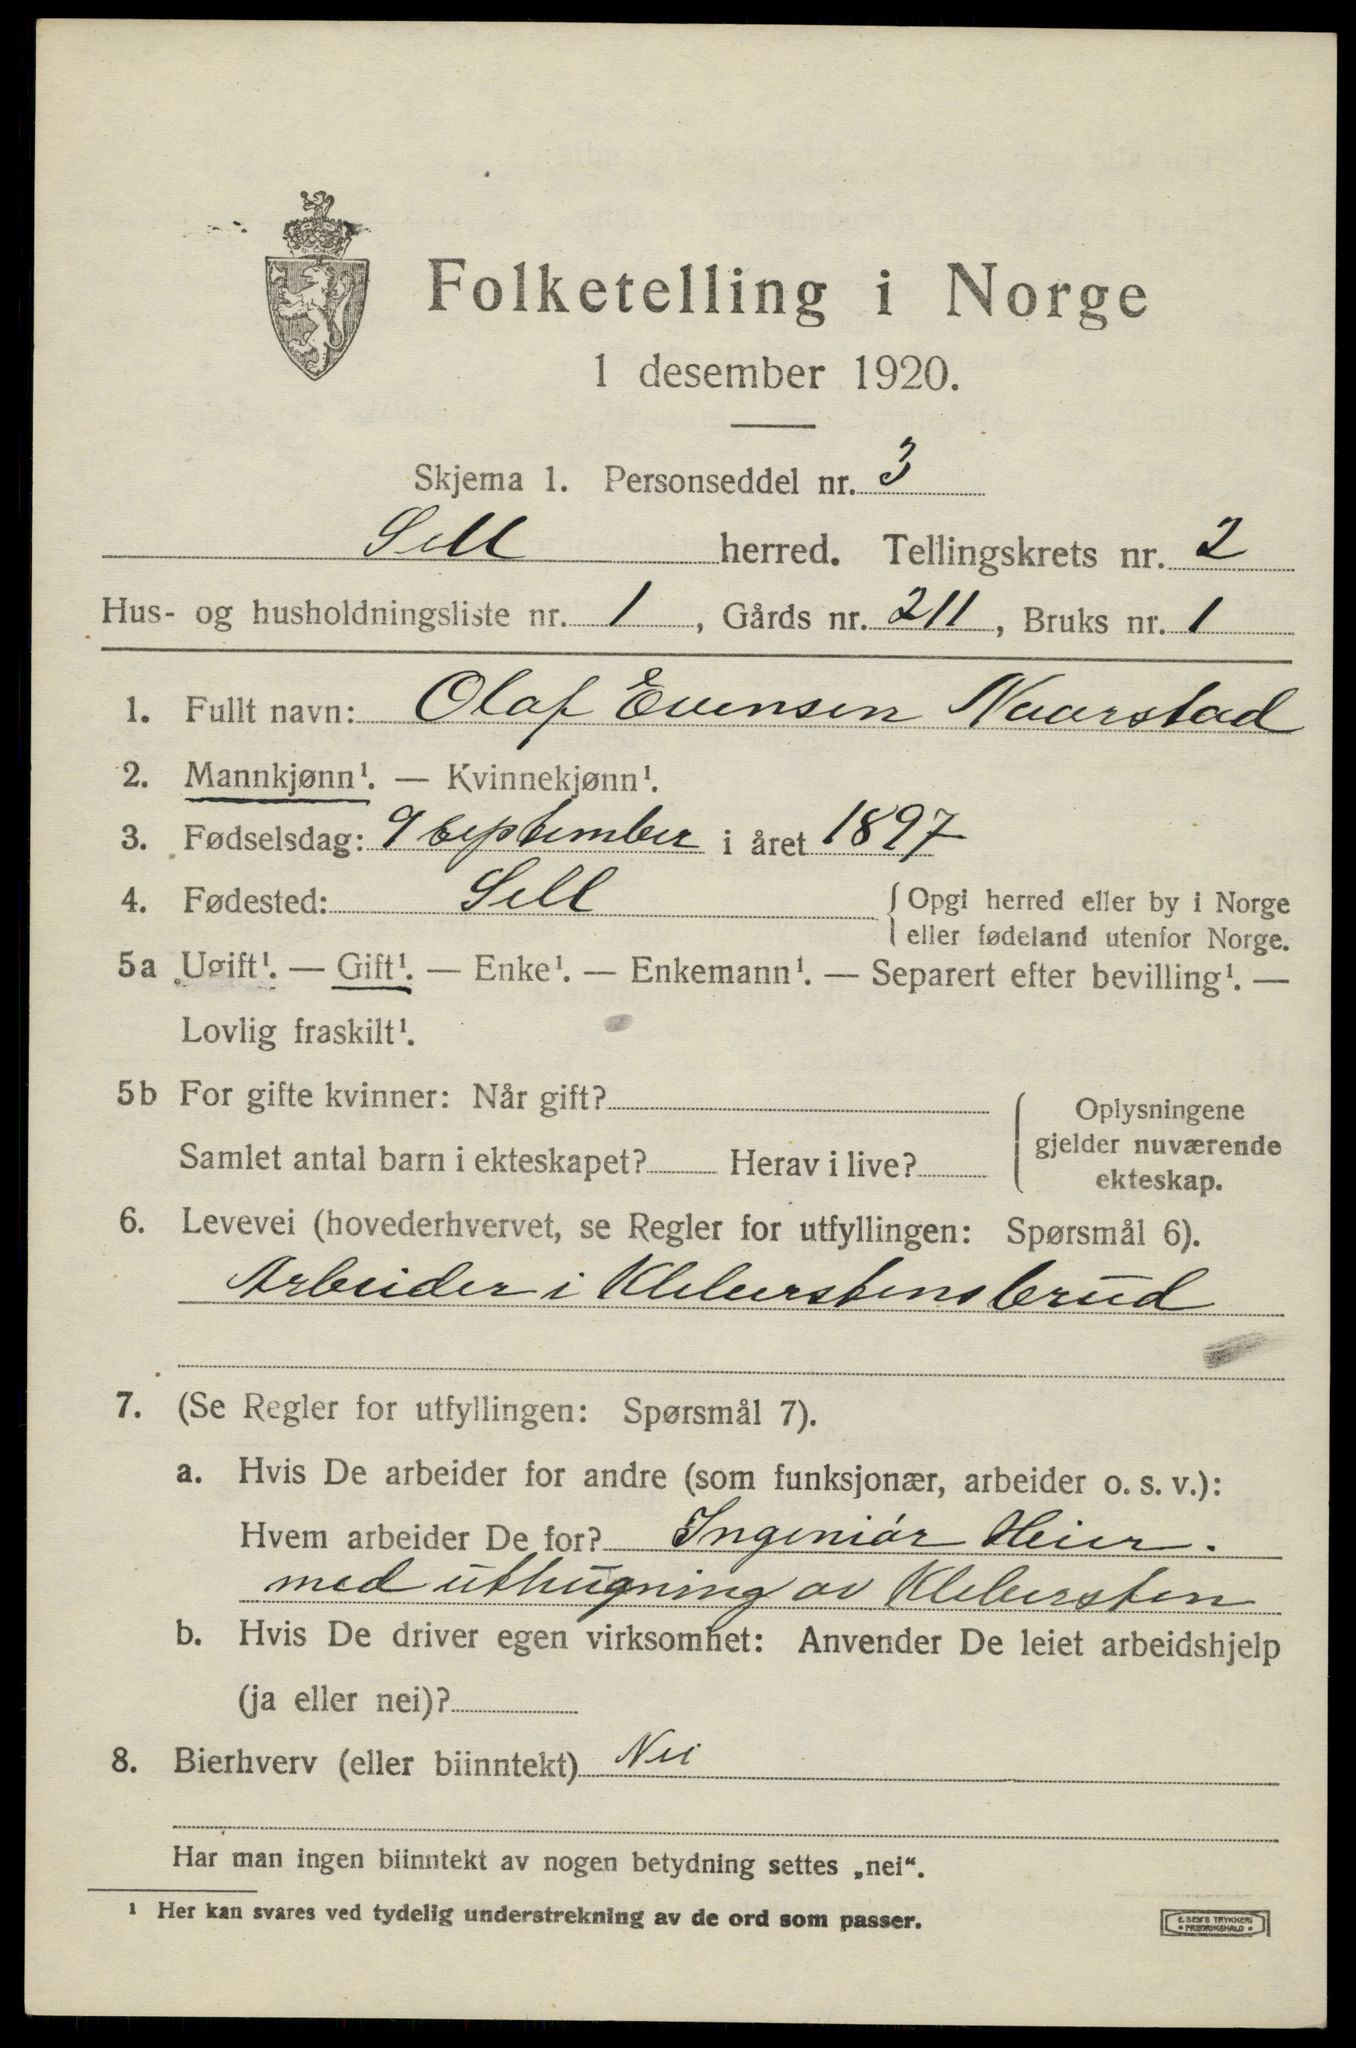 Folketelling i Norge
1 desember 1920.
Skjema 1. Personseddel nr. 3
Sell herred. Tellingskrets nr. 2
Hus- og husholdningsliste nr. 1, Gårds nr. 211, Bruks nr. 1
1. Fullt navn: Olaf Evensen Naarstad
2. Mannkjønn¹. — Kvinnekjønn¹.
3. Fødselsdag: 9 September i året 1897
4. Fødested: Sell { Opgi herred eller by i Norge
eller fødeland utenfor Norge.
5a Ugift¹. — Gift¹. — Enke¹. — Enkemann¹. — Separert efter bevilling¹. —
Lovlig fraskilt¹.
5b For gifte kvinner: Når gift?
Samlet antal barn i ekteskapet? Herav i live?
Oplysningene
gjelder nuværende
ekteskap.
6. Levevei (hovederhvervet, se Regler for utfyllingen: Spørsmål 6).
Arbeider i Kleberstensbrud
7. (Se Regler for utfyllingen: Spørsmål 7).
a. Hvis De arbeider for andre (som funksjonær, arbeider o. s. v.):
Hvem arbeider De for? Ingeniór Heier.
med uthugning av Klebersten
b. Hvis De driver egen virksomhet: Anvender De leiet arbeidshjelp
(ja eller nei)?
8. Bierhverv (eller biinntekt) Nei
Har man ingen biinntekt av nogen betydning settes „nei“.
¹ Her kan svares ved tydelig understrekning av de ord som passer.
E. SEM'S TRYKKERI
* FREDRIKSHALD *